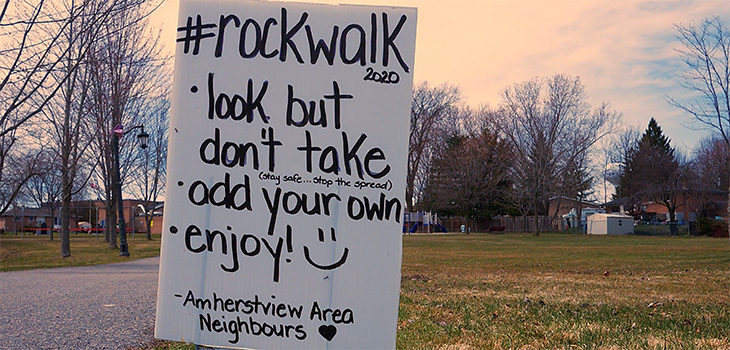 #rockwalk
2020
• look but
don't take
(stay safe... stop the spread)
• add your own
• enjoy!
- Amherstview Area
Neighbours ♥